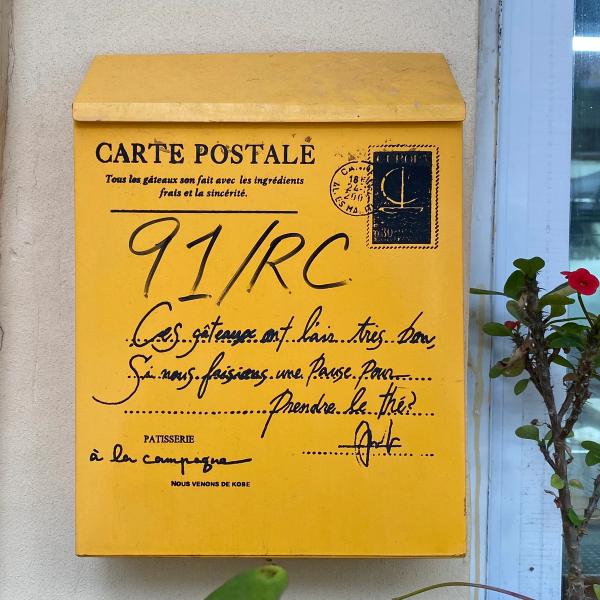 CARTE POSTALE
Tous les gâteaux son fait avec les ingrédients
frais et la sincérité.
EUROPA
91/RC
Ces gâteaux ont l'air très bon,
Si nous faisions une Pause Pour
Prendre le thé?
PATISSERIE
à la campagne
NOUS VENONS DE KOBE